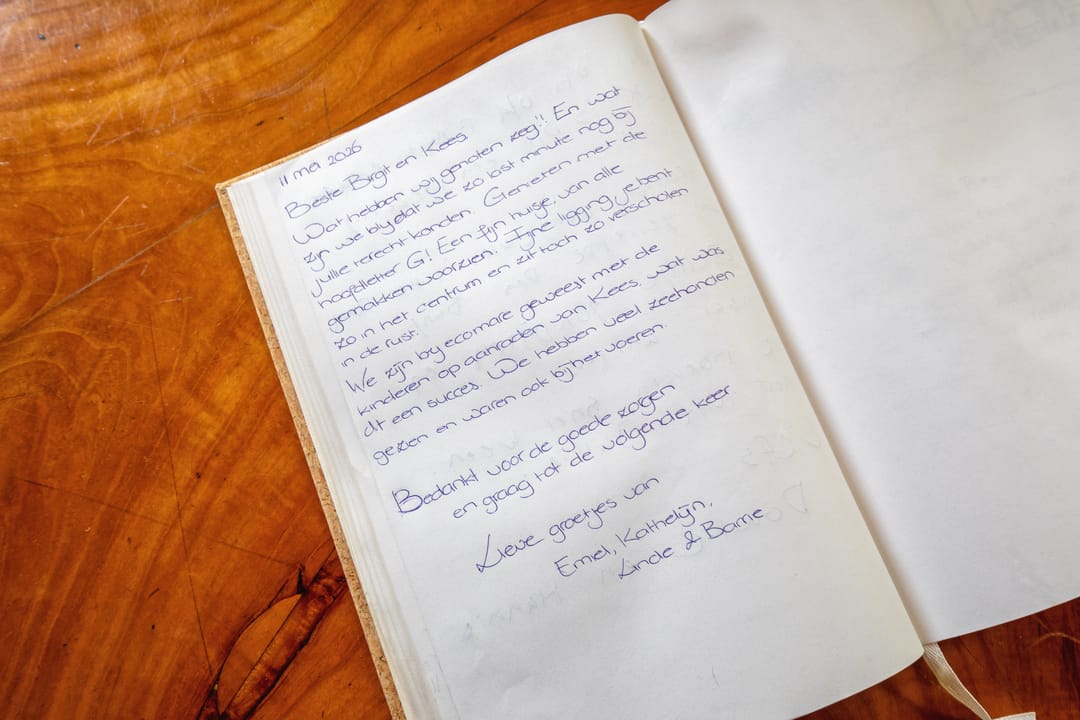 11 mei 2026
Beste Birgit en Kees
Wat hebben wij genoten zeg!! En wat
zijn we blij dat we zo last minute nog bij
jullie terecht konden. Genieten met de
hoofdletter G! Een fijn huisje, van alle
gemakken voorzien. Fijne ligging, je bent
zo in het centrum en zit toch zo verscholen
in de rust.
We zijn bij ecomare geweest met de
kinderen op aanraden van Kees, wat was
dit een succes. We hebben veel zeehonden
gezien en waren ook bij het voeren.
Bedankt voor de goede zorgen
en graag tot de volgende keer.
Lieve groetjes van
Emiel, Kathelijn,
Linde &